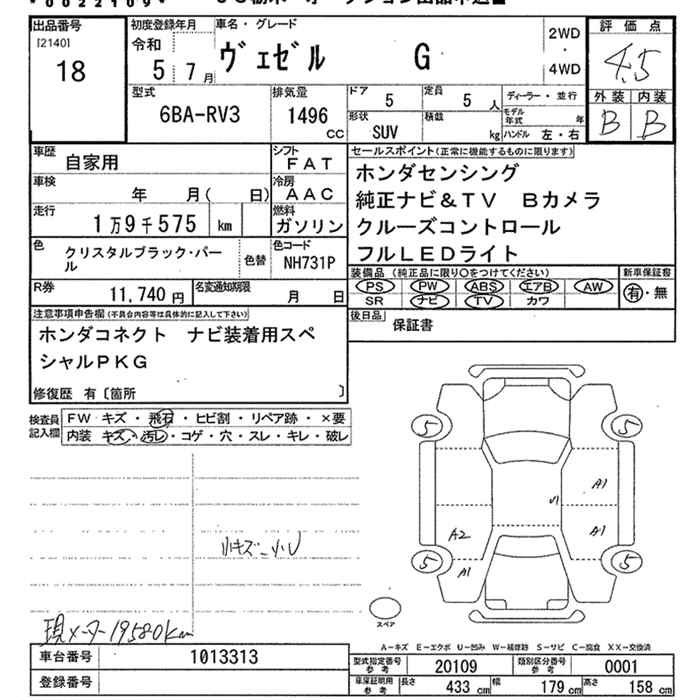 *0022109*
出品番号 初度登録年月 車名・グレード 2WD 評価点
[2140] 令和 ヴェゼル G ・ 4.5
18 5 7月 4WD 外装 内装
型式 排気量 ドア 定員 ディーラー・並行 B B
6BA-RV3 1496 CC 5 5 人 モデル年式 年
形状 SUV 積載 kg ハンドル 左・右
車歴 自家用 シフト FAT セールスポイント(正常に機能するものに限ります)
車検 年 月( 日) 冷房 AAC ホンダセンシング
走行 1万9千575 km 燃料 ガソリン 純正ナビ&TV Bカメラ
色 クリスタルブラック・パー 色替 色コード クルーズコントロール
ル NH731P フルLEDライト
R券 11,740円 名変通知期限 月 日 装備品 (純正品に限り○をつけてください) 新車保証書
PS PW ABS エアB AW 有・無
SR ナビ TV カワ
注意事項申告欄(不具合内容等は具体的に記入して下さい) 後日品 保証書
ホンダコネクト ナビ装着用スペ
シャルPKG
修復歴 有〔箇所 〕
検査員 FW キズ・飛石・ヒビ割・リペア跡・×要
記入欄 内装 キズ・汚レ・コゲ・穴・スレ・キレ・破レ
5 5
A1
U1
A2 A1
小キズ-小U
5 5
A1
スペア
現メーター19580km
A-キズ E-エクボ U-凹み W-補修跡 S-サビ C-腐食 XX-交換済
車台番号 1013313 型式指定番号 参考 20109 類別区分番号 参考 0001
登録番号 車庫証明用 参考 長さ 433 cm 幅 179 cm 高さ 158 cm